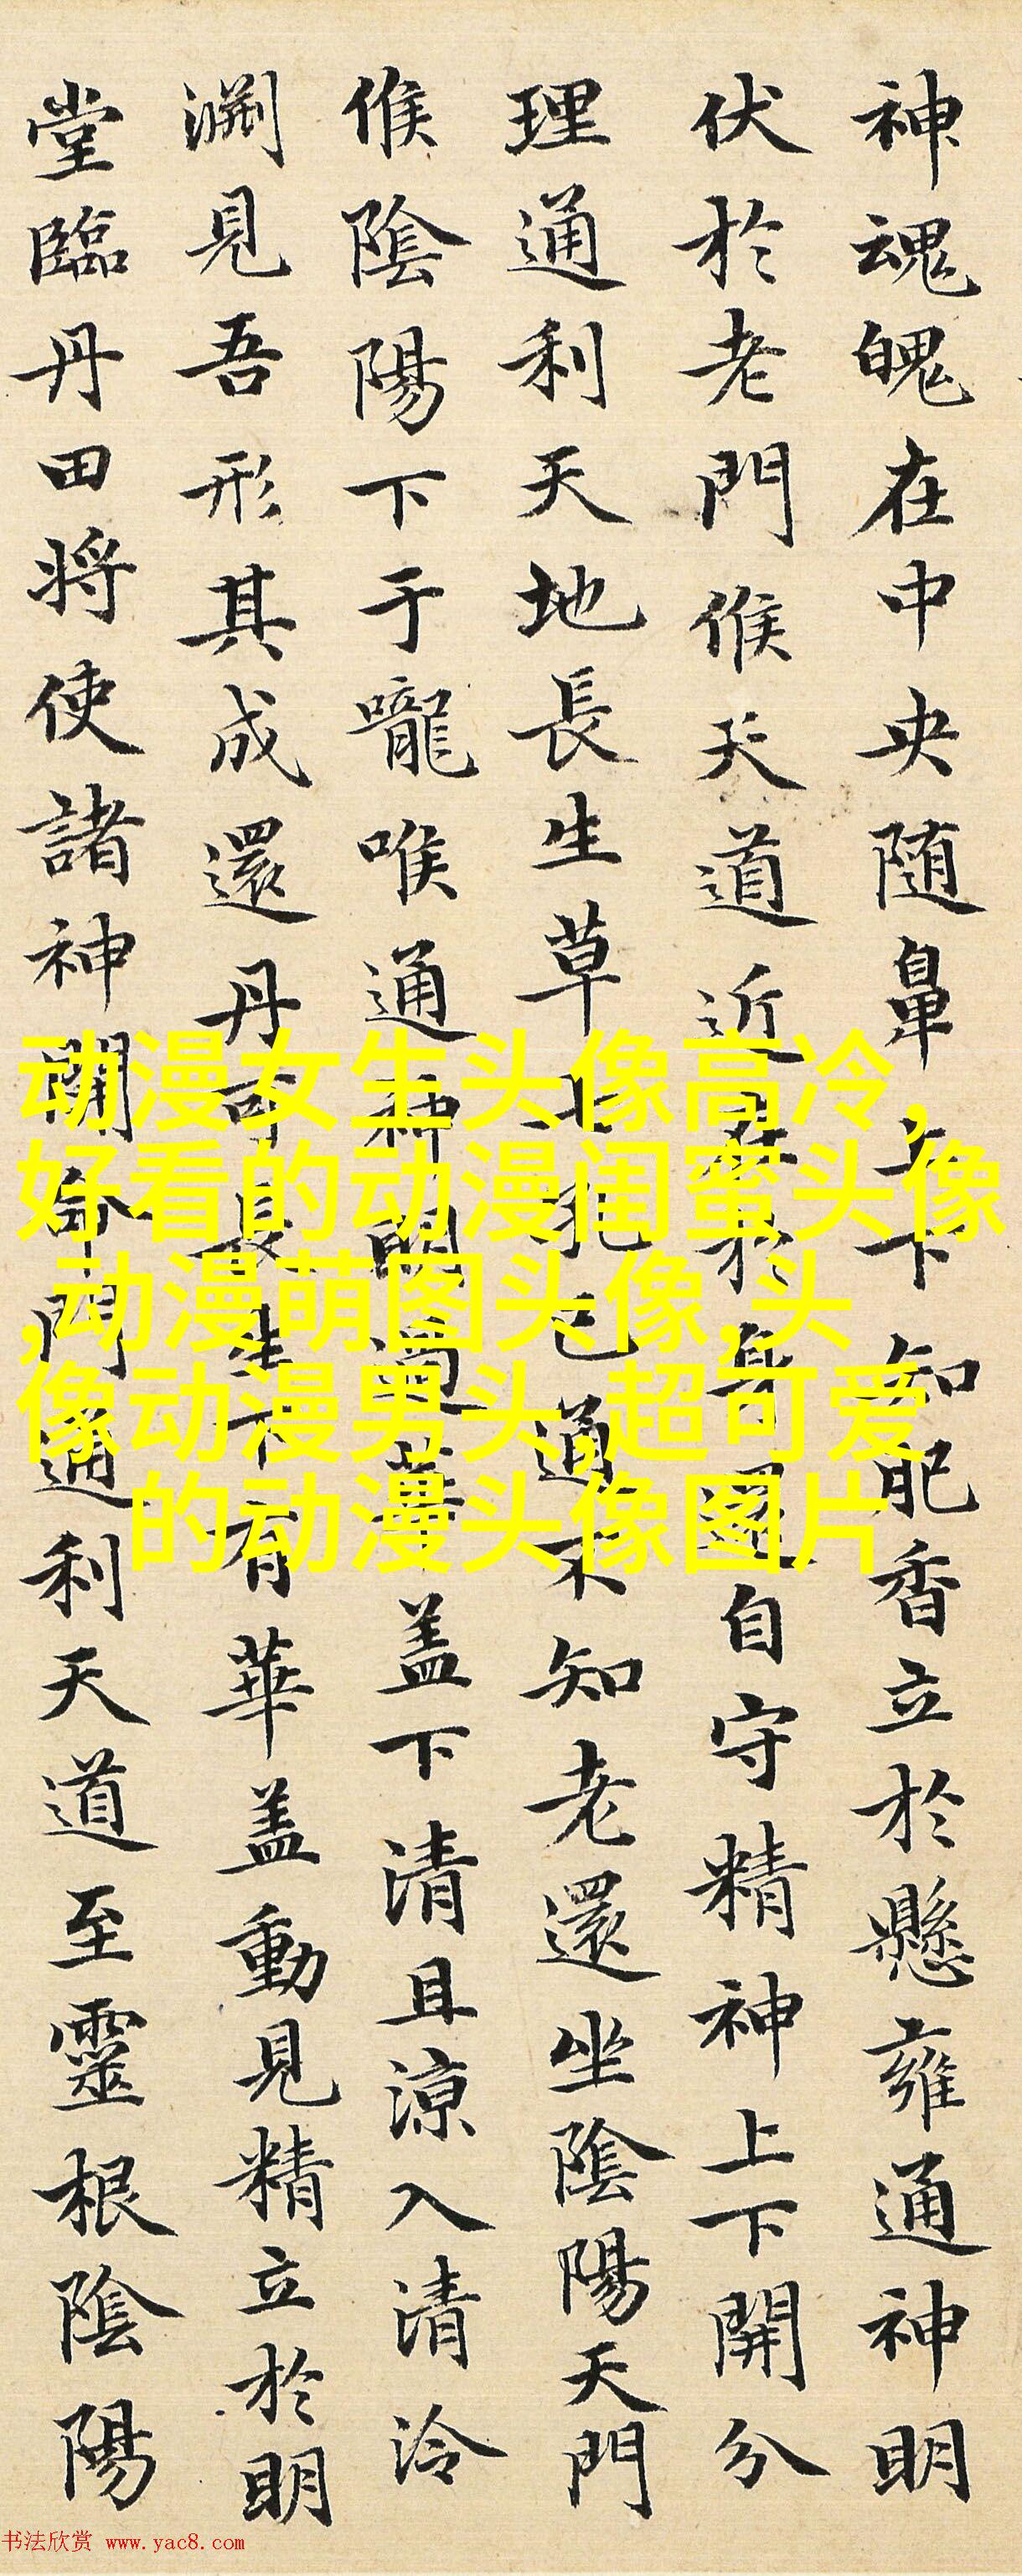 神魂魄在中央随鼻上下知肥香立於懸雍通神明
伏於老門候天道近在於身還自守精神上下開分
理通利天地長生草七孔已通不知老還坐陰陽天門
候陰陽下于嚨喉通神明過華盖下清且涼入清冷
渊見吾形其成還丹可長生下有華盖動見精立於明
堂臨丹田将使諸神開命門通利天道至靈根陰陽
动漫女生头像高冷,
好看的动漫闺蜜头像
,动漫萌图头像,头
像动漫男头,超可爱
的动漫头像图片
书法欣赏 www.yac8.com